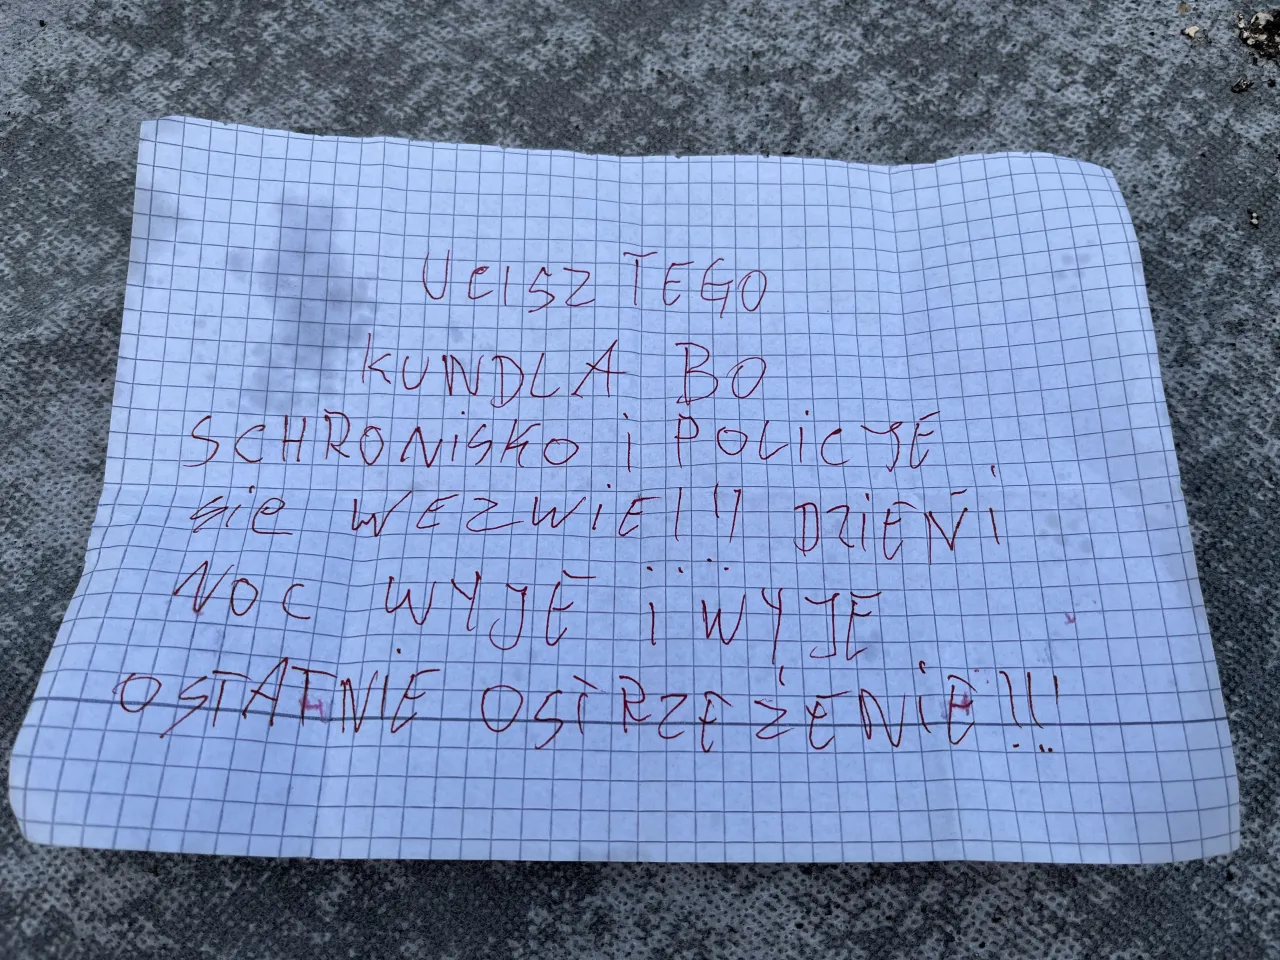 UCISZ TEGO
KUNDLA BO
SCHRONiSKO i POLiCJE
sie WEZWiE!!! DZiEN i
NOC WYJE i WYJE
OSTATNiE OSTRZEŻENiE!!!